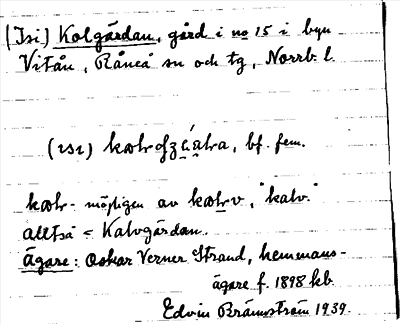 (Isi) Kolgårdan, gård i no 15 i byn
Vitån, Råneå sn och tg, Norrb. l.
bf. fem.
möjligen av "kalv."
alltså = Kalvgårdan.
Ägare: Oskar Verner Strand, hemmans-
ägare f. 1898 kb.
Edvin Brännström 1939.